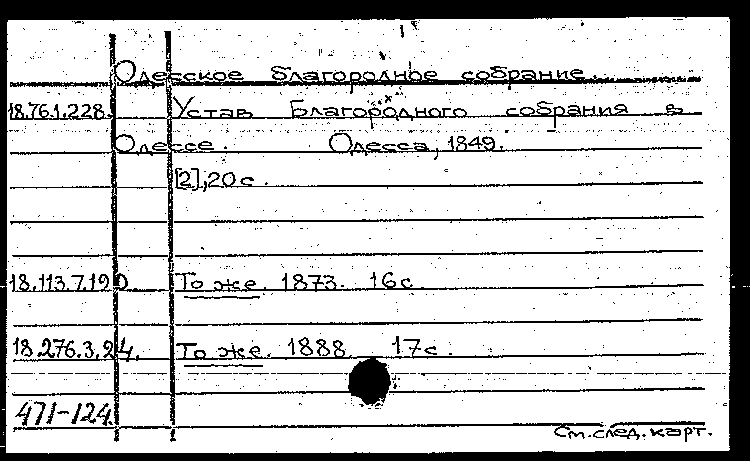 Одесское благородное собрание.
18.76.1.228. Устав Благородного собрания в
Одессе. Одесса, 1849.
[2], 20 с.
18.113.7.190 То же. 1873. 16 с.
18.276.3.24. То же. 1888. 17 с.
471-124.
См. след. карт.